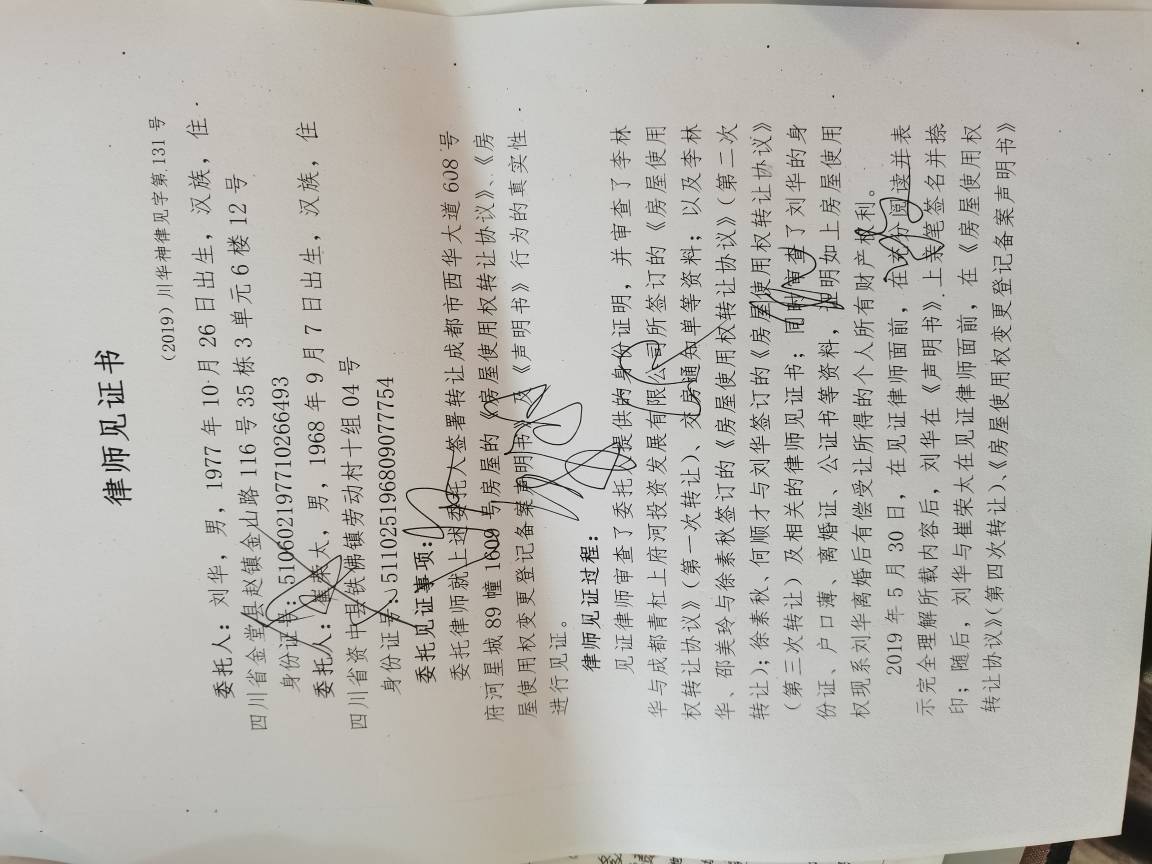 律师见证书
（2019）川华神律见字第131号
委托人：刘华，男，1977年10月26日出生，汉族，住
四川省金堂县赵镇金山路116号35栋3单元6楼12号
身份证号：510602197710266493
委托人：崔荣太，男，1968年9月7日出生，汉族，住
四川省资中县铁佛镇劳动村十组04号
身份证号：511025196809077754
委托见证事项：
委托律师就上述委托人签署转让成都市西华大道608号
府河星城89幢1609号房屋的《房屋使用权转让协议》、《房
屋使用权变更登记备案声明书》及《声明书》行为的真实性
进行见证。
律师见证过程：
见证律师审查了委托人提供的身份证明，并审查了李林
华与成都青杠上府河投资发展有限公司所签订的《房屋使用
权转让协议》（第一次转让）、交房通知单等资料；以及李林
华、邵美玲与徐素秋签订的《房屋使用权转让协议》（第二次
转让）；徐素秋、何顺才与刘华签订的《房屋使用权转让协议》
（第三次转让）及相关的律师见证书；同时审查了刘华的身
份证、户口薄、离婚证、公证书等资料，证明如上房屋使用
权现系刘华离婚后有偿受让所得的个人所有财产权利。
2019年5月30日，在见证律师面前，在充分阅读并表
示完全理解所载内容后，刘华在《声明书》上亲笔签名并捺
印；随后，刘华与崔荣太在见证律师面前，在《房屋使用权
转让协议》（第四次转让）、《房屋使用权变更登记备案声明书》